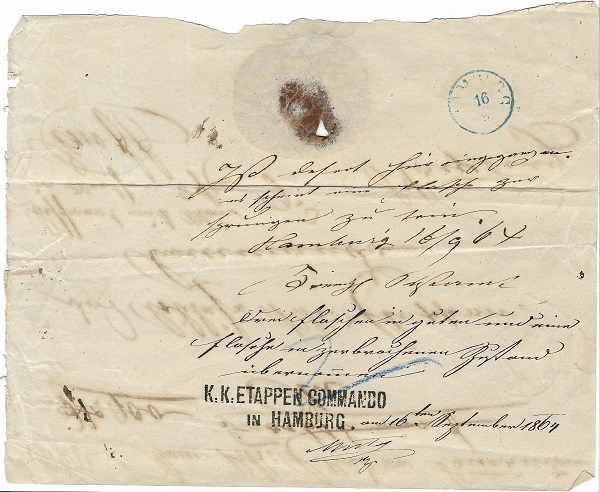 HAMBURG
16
9
Ist defect hier eingegangen.
es scheint eine flasche zer
sprungen zu sein
Hamburg 16/9 64
drei flaschen in guten und eine
flasche in zerbrochenen Zustand
übernommen
K.K. ETAPPEN COMMANDO
IN HAMBURG. am 16ten September 1864